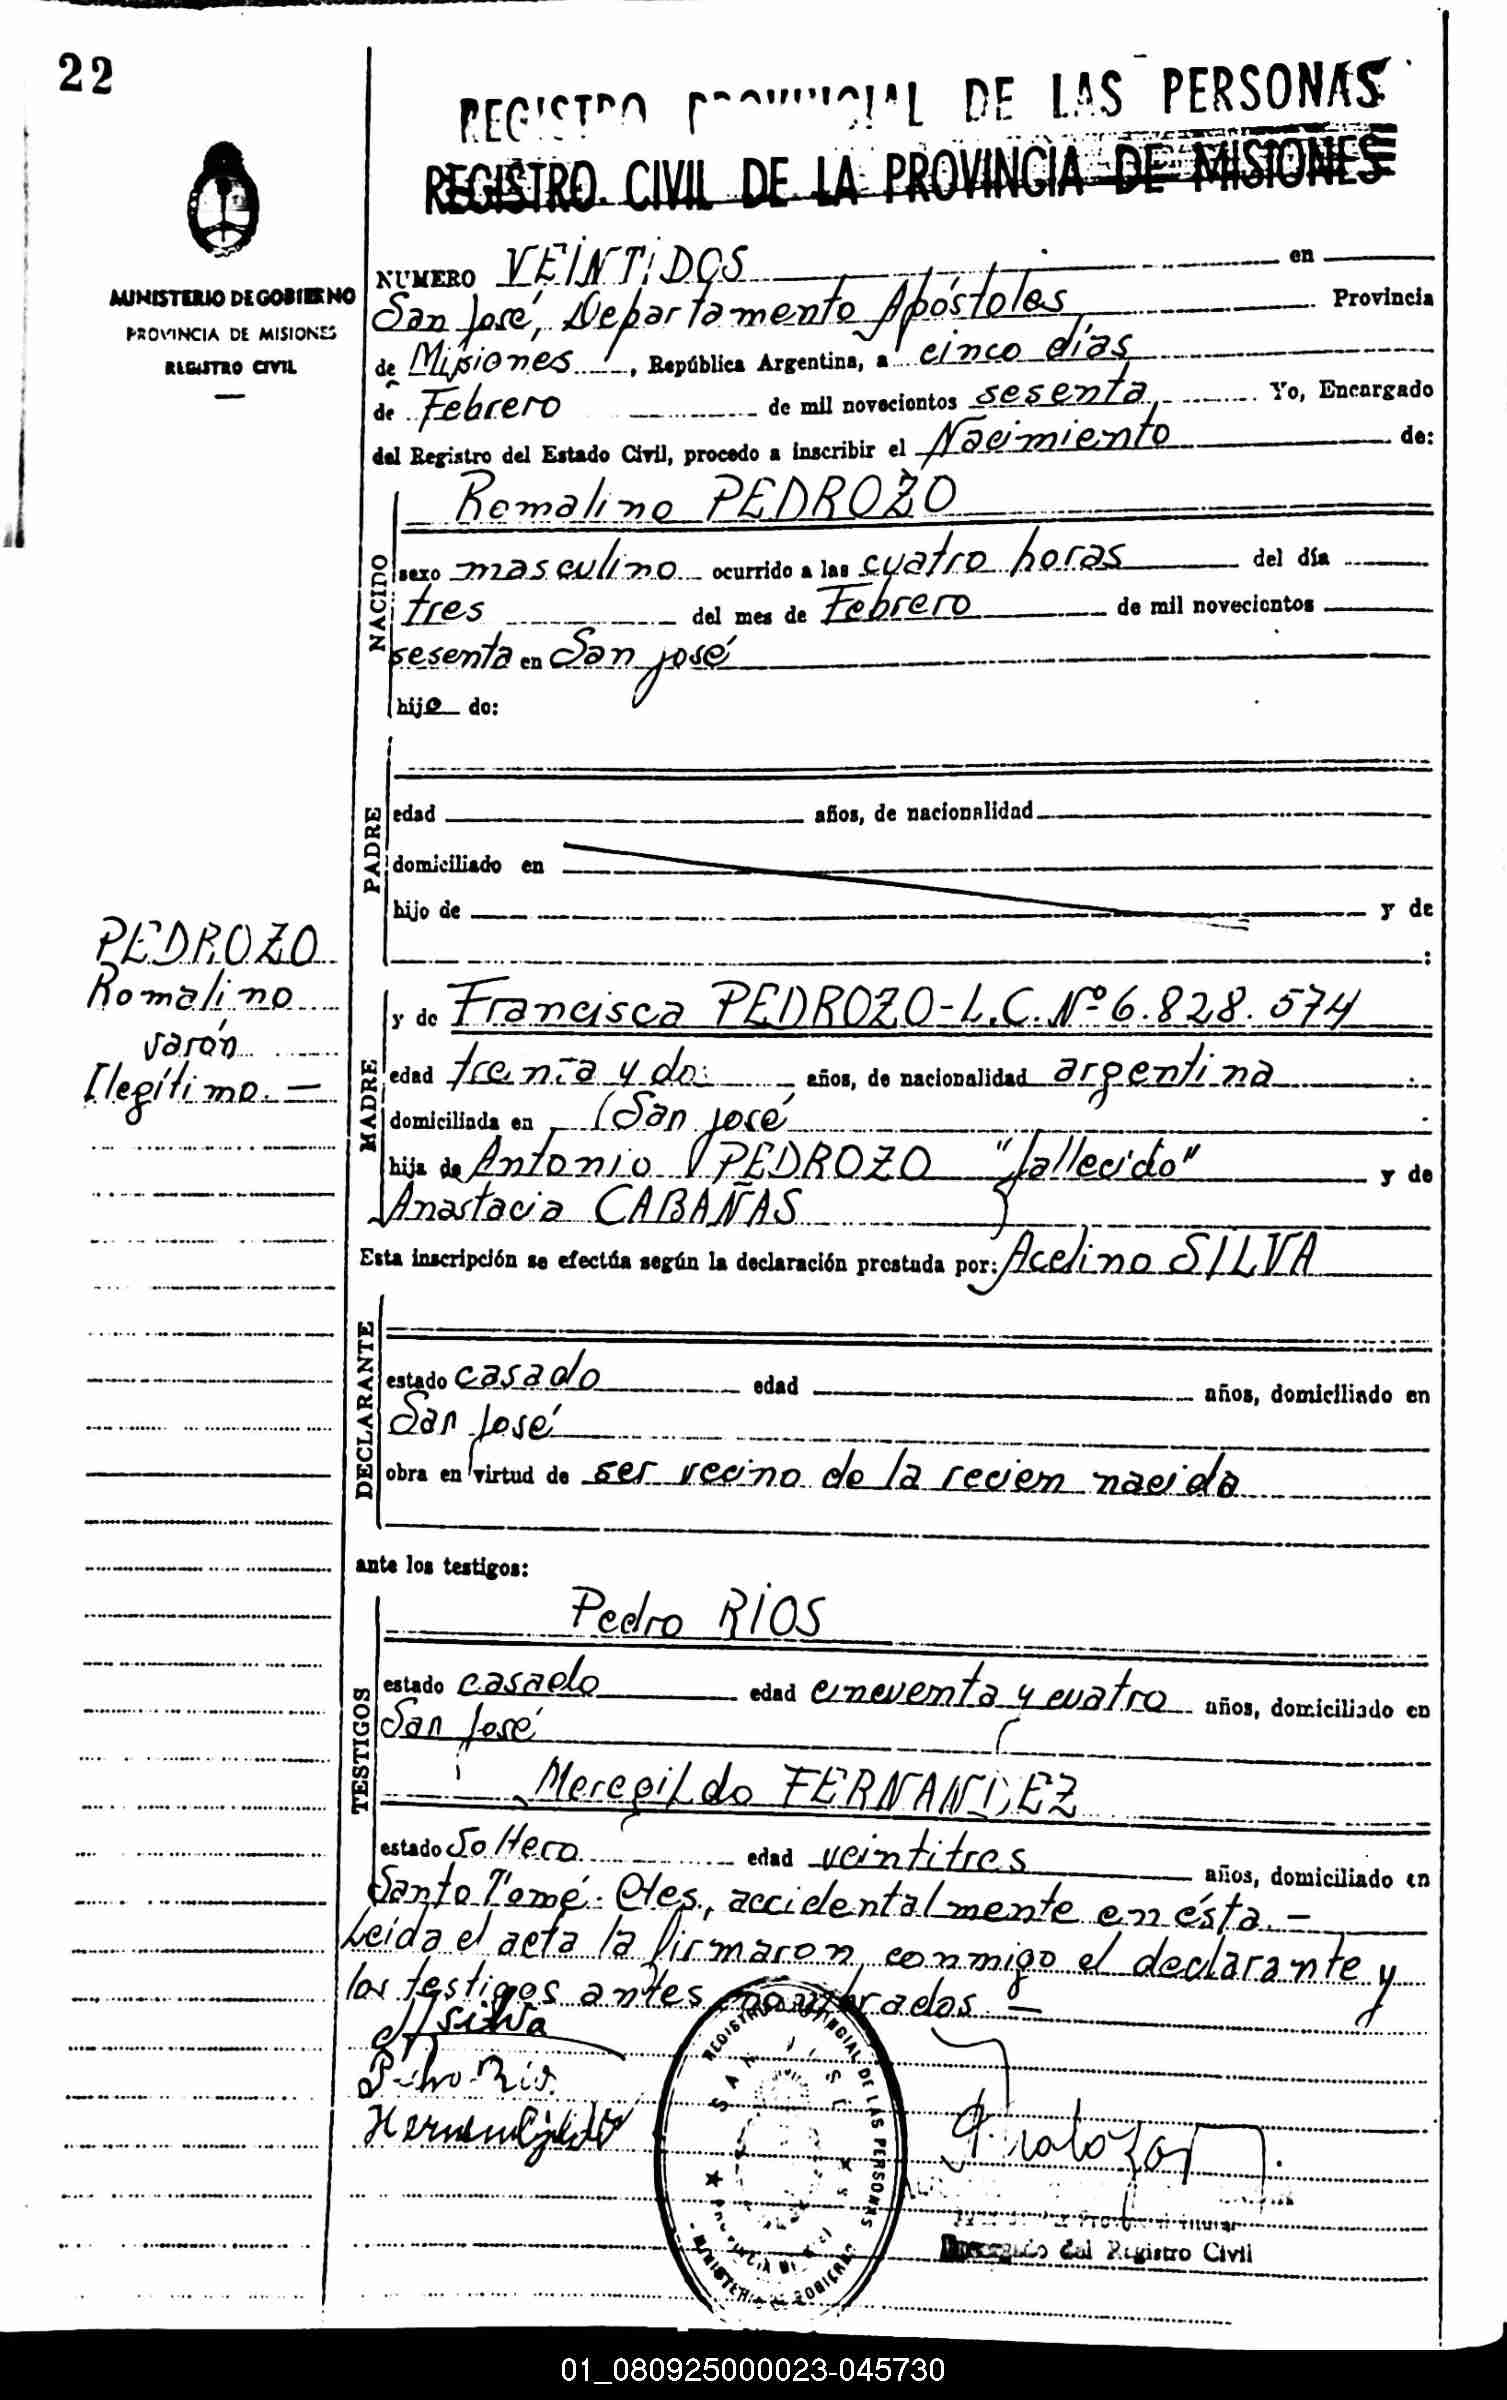 22
REGISTRO PROVINCIAL DE LAS PERSONAS
REGISTRO CIVIL DE LA PROVINCIA DE MISIONES
MINISTERIO DE GOBIERNO
PROVINCIA DE MISIONES
REGISTRO CIVIL
NUMERO VEINTIDOS en
San José, Departamento Apóstoles Provincia
de Misiones, República Argentina, a cinco días
de Febrero de mil novecientos sesenta Yo, Encargado
del Registro del Estado Civil, procedo a inscribir el Nacimiento de:
NACIDO
Romalino PEDROZO
sexo masculino ocurrido a las cuatro horas del día
tres del mes de Febrero de mil novecientos
sesenta en San José
hijo de:
PADRE
edad años, de nacionalidad
domiciliado en
hijo de y de
:
PEDROZO
Romalino
varón
Ilegítimo.—
MADRE
y de Francisca PEDROZO-L.C.Nº6.828.574
edad treinta y dos años, de nacionalidad argentina
domiciliada en San José
hija de Antonio PEDROZO "fallecido" y de
Anastacia CABAÑAS
Esta inscripción se efectúa según la declaración prestada por: Acelino SILVA
DECLARANTE
estado casado edad años, domiciliado en
San José
obra en virtud de ser vecino de la recien nacida
ante los testigos:
TESTIGOS
Pedro RIOS
estado casado edad cincuenta y cuatro años, domiciliado en
San José
Meregildo FERNANDEZ
estado Soltero edad veintitres años, domiciliado en
Santo Tomé. Ctes., accidentalmente en ésta.—
Leida el acta la firmaron conmigo el declarante y
los testigos antes nombrados—
Silva
Pedro Rios
Hermenegildo
REGISTRO PROVINCIAL DE LAS PERSONAS
SAN JOSE
PROVINCIA DE MISIONES
MINISTERIO DE GOBIERNO
Encargado del Registro Civil
01_080925000023-045730